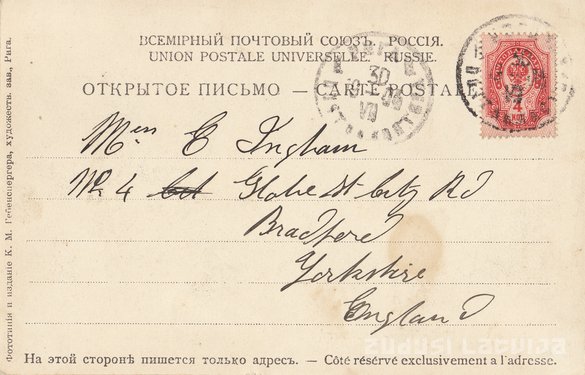 ВСЕМІРНЫЙ ПОЧТОВЫЙ СОЮЗЪ. РОССІЯ.
UNION POSTALE UNIVERSELLE. RUSSIE.
ОТКРЫТОЕ ПИСЬМО — CARTE POSTALE
E Ingham
No 4 Globe St City Rd
Bradford
Yorkshire
England
На этой сторонѣ пишется только адресъ. — Côté résérvé exclusivement a l'adresse.
Фототипія и изданіе К. М. Гебенспергера, художеств. зав., Рига.
30
VII
4
Zudusi Latvija